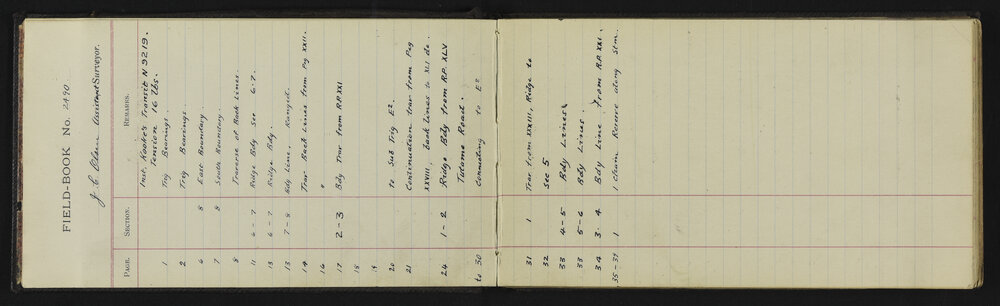 FIELD-BOOK No. 2490
Assistant Surveyor.
PAGE. SECTION. REMARKS.
Inst. Kooke's Transit N 9219.
Tension 16 lbs.
1 Trig Bearings.
2 Trig Bearings.
6 8 East Boundary
7 8 South Boundary.
8 Traverse of Back Lines.
11 6-7 Ridge Bdy Sec 6-7.
13 6-7 Ridge Bdy.
13 7-8 Bdy Line, Ranged.
14 Trav Back Lines from Pg XXII.
16 "
17 2-3 Bdy Trav from R.P. XXI
18
19
20 to Sub Trig E².
21 Continuation trav from Peg
XXVIII, Back Lines to XLI do.
24 1-2 Ridge Bdy from R.P. XLV
Road.
to 30 Connecting to E²
31 1 Trav from XXXIII, Ridge to
32 Sec 5
33 4-5 Bdy Lines
33 5-6 Bdy Lines.
34 3-4 Bdy Line from R.P. XXI.
35-37 1 1 Chain Reserve along Stm.